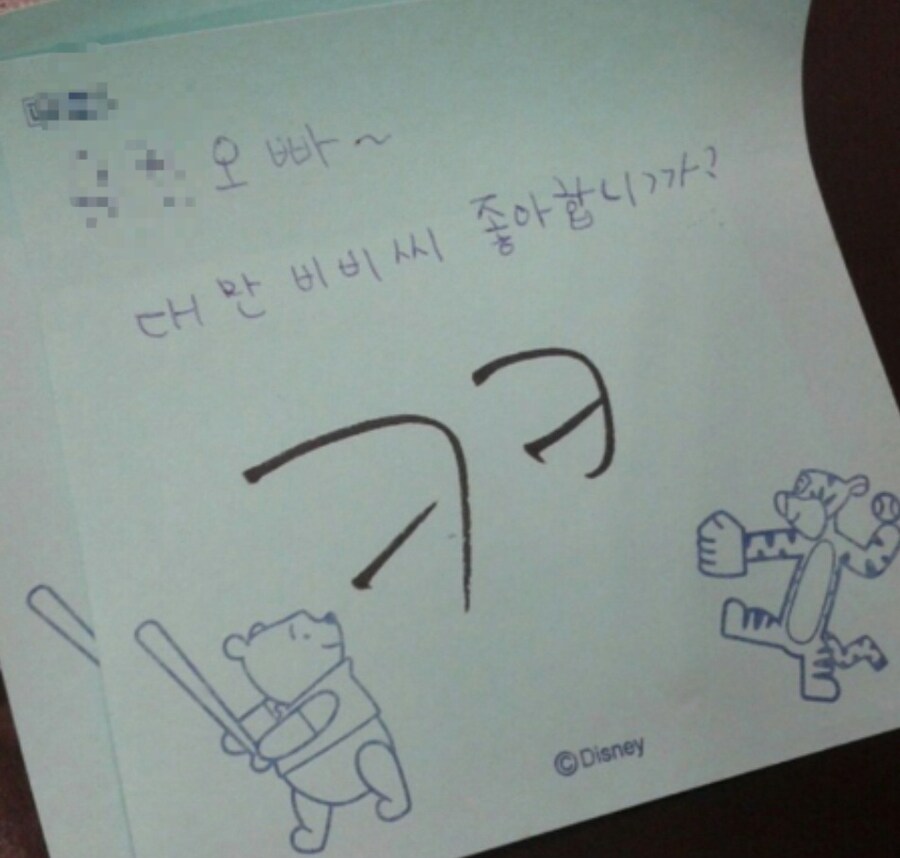 오빠~
대만 비비씨 좋아합니까?
ㅋㅋ
©Disney